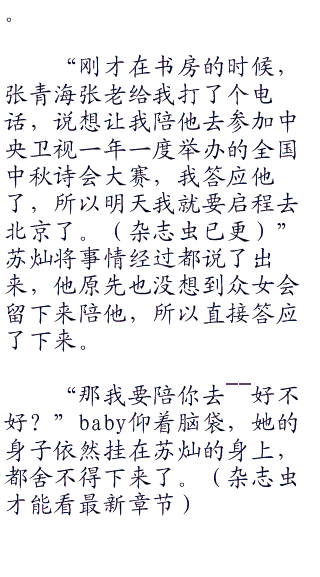 。
“刚才在书房的时候，
张青海张老给我打了个电
话，说想让我陪他去参加中
央卫视一年一度举办的全国
中秋诗会大赛，我答应他
了，所以明天我就要启程去
北京了。（杂志虫已更）”
苏灿将事情经过都说了出
来，他原先也没想到众女会
留下来陪他，所以直接答应
了下来。
“那我要陪你去――好不
好？”baby仰着脑袋，她的
身子依然挂在苏灿的身上，
都舍不得下来了。（杂志虫
才能看最新章节）